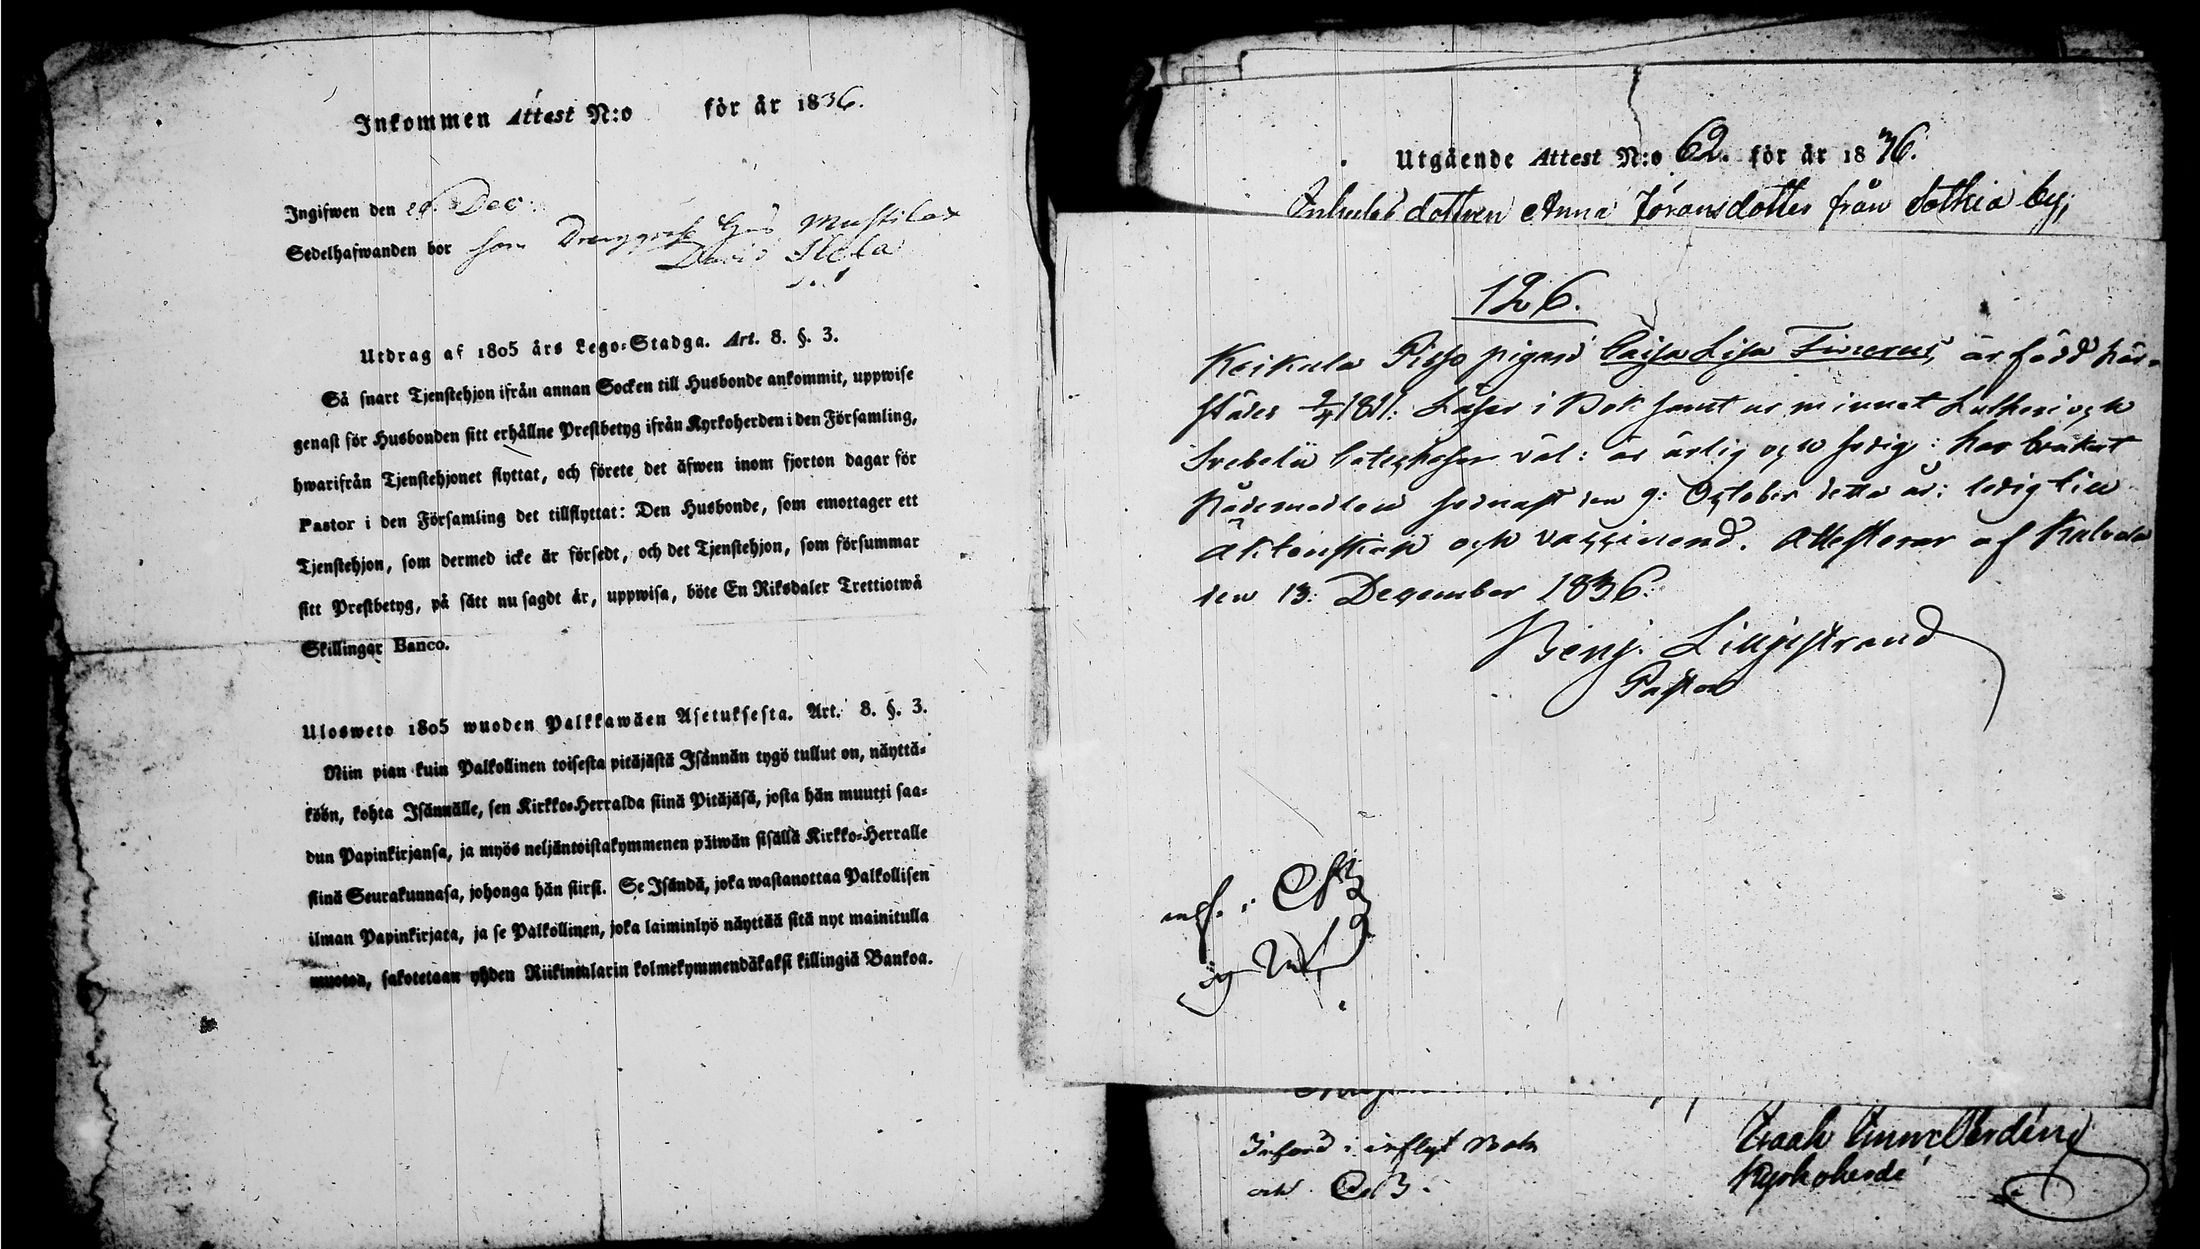 Inkommen Attest N:o för år 1836.
Ingifwen den 26 Dec
Sedelhafwanden bor som Mustilax
David
Utdrag af 1805 års Lego-Stadga. Art. 8. §. 3.
Så snart Tjenstehjon ifrån annan Socken till Husbonde ankommit, uppwise
genast för Husbonden sitt erhållne Prestbetyg ifrån Kyrkoherden i den Församling,
hwarifrån Tjenstehjonet flyttat, och förete det äfwen inom fjorton dagar för
Pastor i den Församling det tillflyttat: Den Husbonde, som emottager ett
Tjenstehjon, som dermed icke är försedt, och det Tjenstehjon, som försummar
sitt Prestbetyg, på sätt nu sagdt är, uppwisa, böte En Riksdaler Trettiotwå
Skillingar Banco.
Ulosweto 1805 wuoden Palkkawäen Asetuksesta. Art. 8. §. 3.
Niin pian kuin Palkollinen toisesta pitäjästä Isännän tygö tullut on, näyttä-
köön, kohta Isännälle, sen Kirkko-Herralda siinä Pitäjäsä, josta hän muutti saa-
dun Papinkirjansa, ja myös neljäntoistakymmenen päiwän sisällä Kirkko-Herralle
siinä Seurakunnasa, johonga hän siirsi. Se Isändä, joka wastanottaa Palkollisen
ilman Papinkirjata, ja se Palkollinen, joka laiminlyö näyttää sitä nyt mainitulla
muoton, sakotetaan yhden Riikintalarin kolmekymmendäkaksi killingiä Bankoa.
Utgående Attest N:o 62. för år 1836.
dottren Anna Jöransdotter från Sothia by,
126.
Keikula Piso pigan Caisa Lisa Finerus, är född här-
städes 1811: Läser i Bok samt ur minnet Lutheri och
Svebelii Catecheser väl: är ärlig och fredig: har brukat
Nådemedlen sednast den 9: October detta år: ledig till
Äktenskap och vaccinerad. Attesterar af Kalvola
den 13: December 1836.
Benj. Lilljestrand
Pastor
Införd i inflyt Bok
och
Kyrkoherde